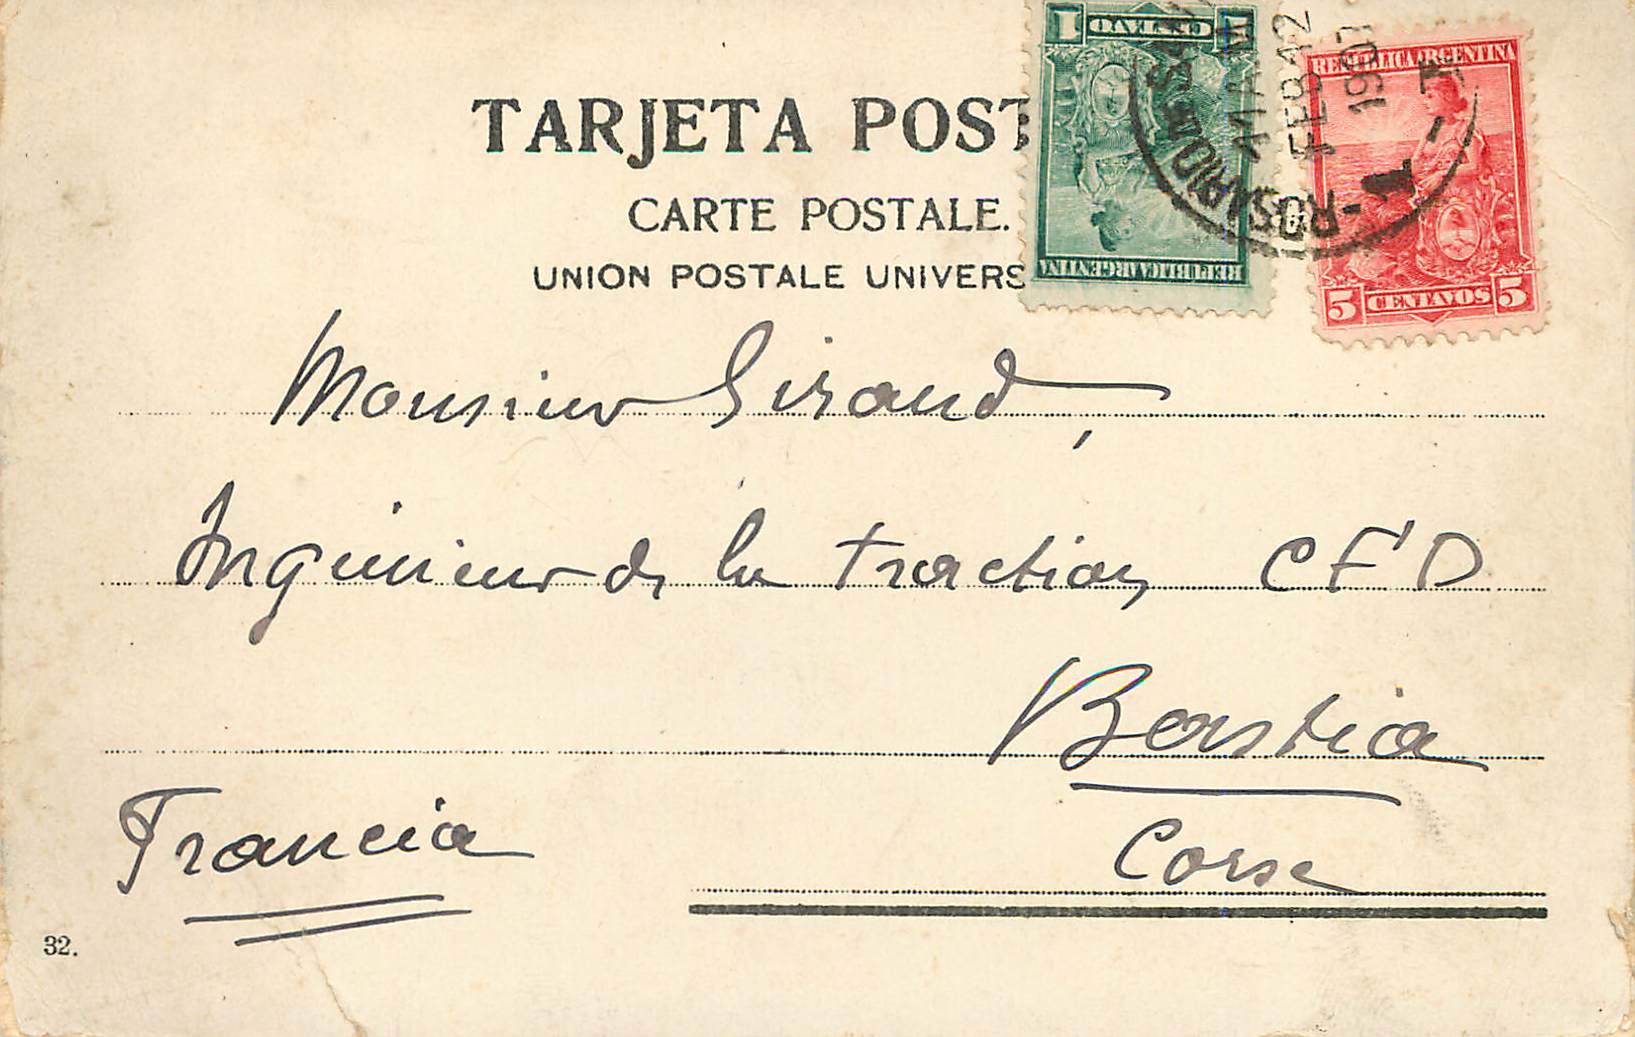 TARJETA POST
CARTE POSTALE.
UNION POSTALE UNIVERS
1 CENTAVO 1
REPUBLICA ARGENTINA
REPUBLICA ARGENTINA
5 CENTAVOS 5
ROSARIO
11 AM
FEB 12
1901
Monsieur Giraud,
Ingénieur de la traction CFD
Bastia
Corse
Francia
32.